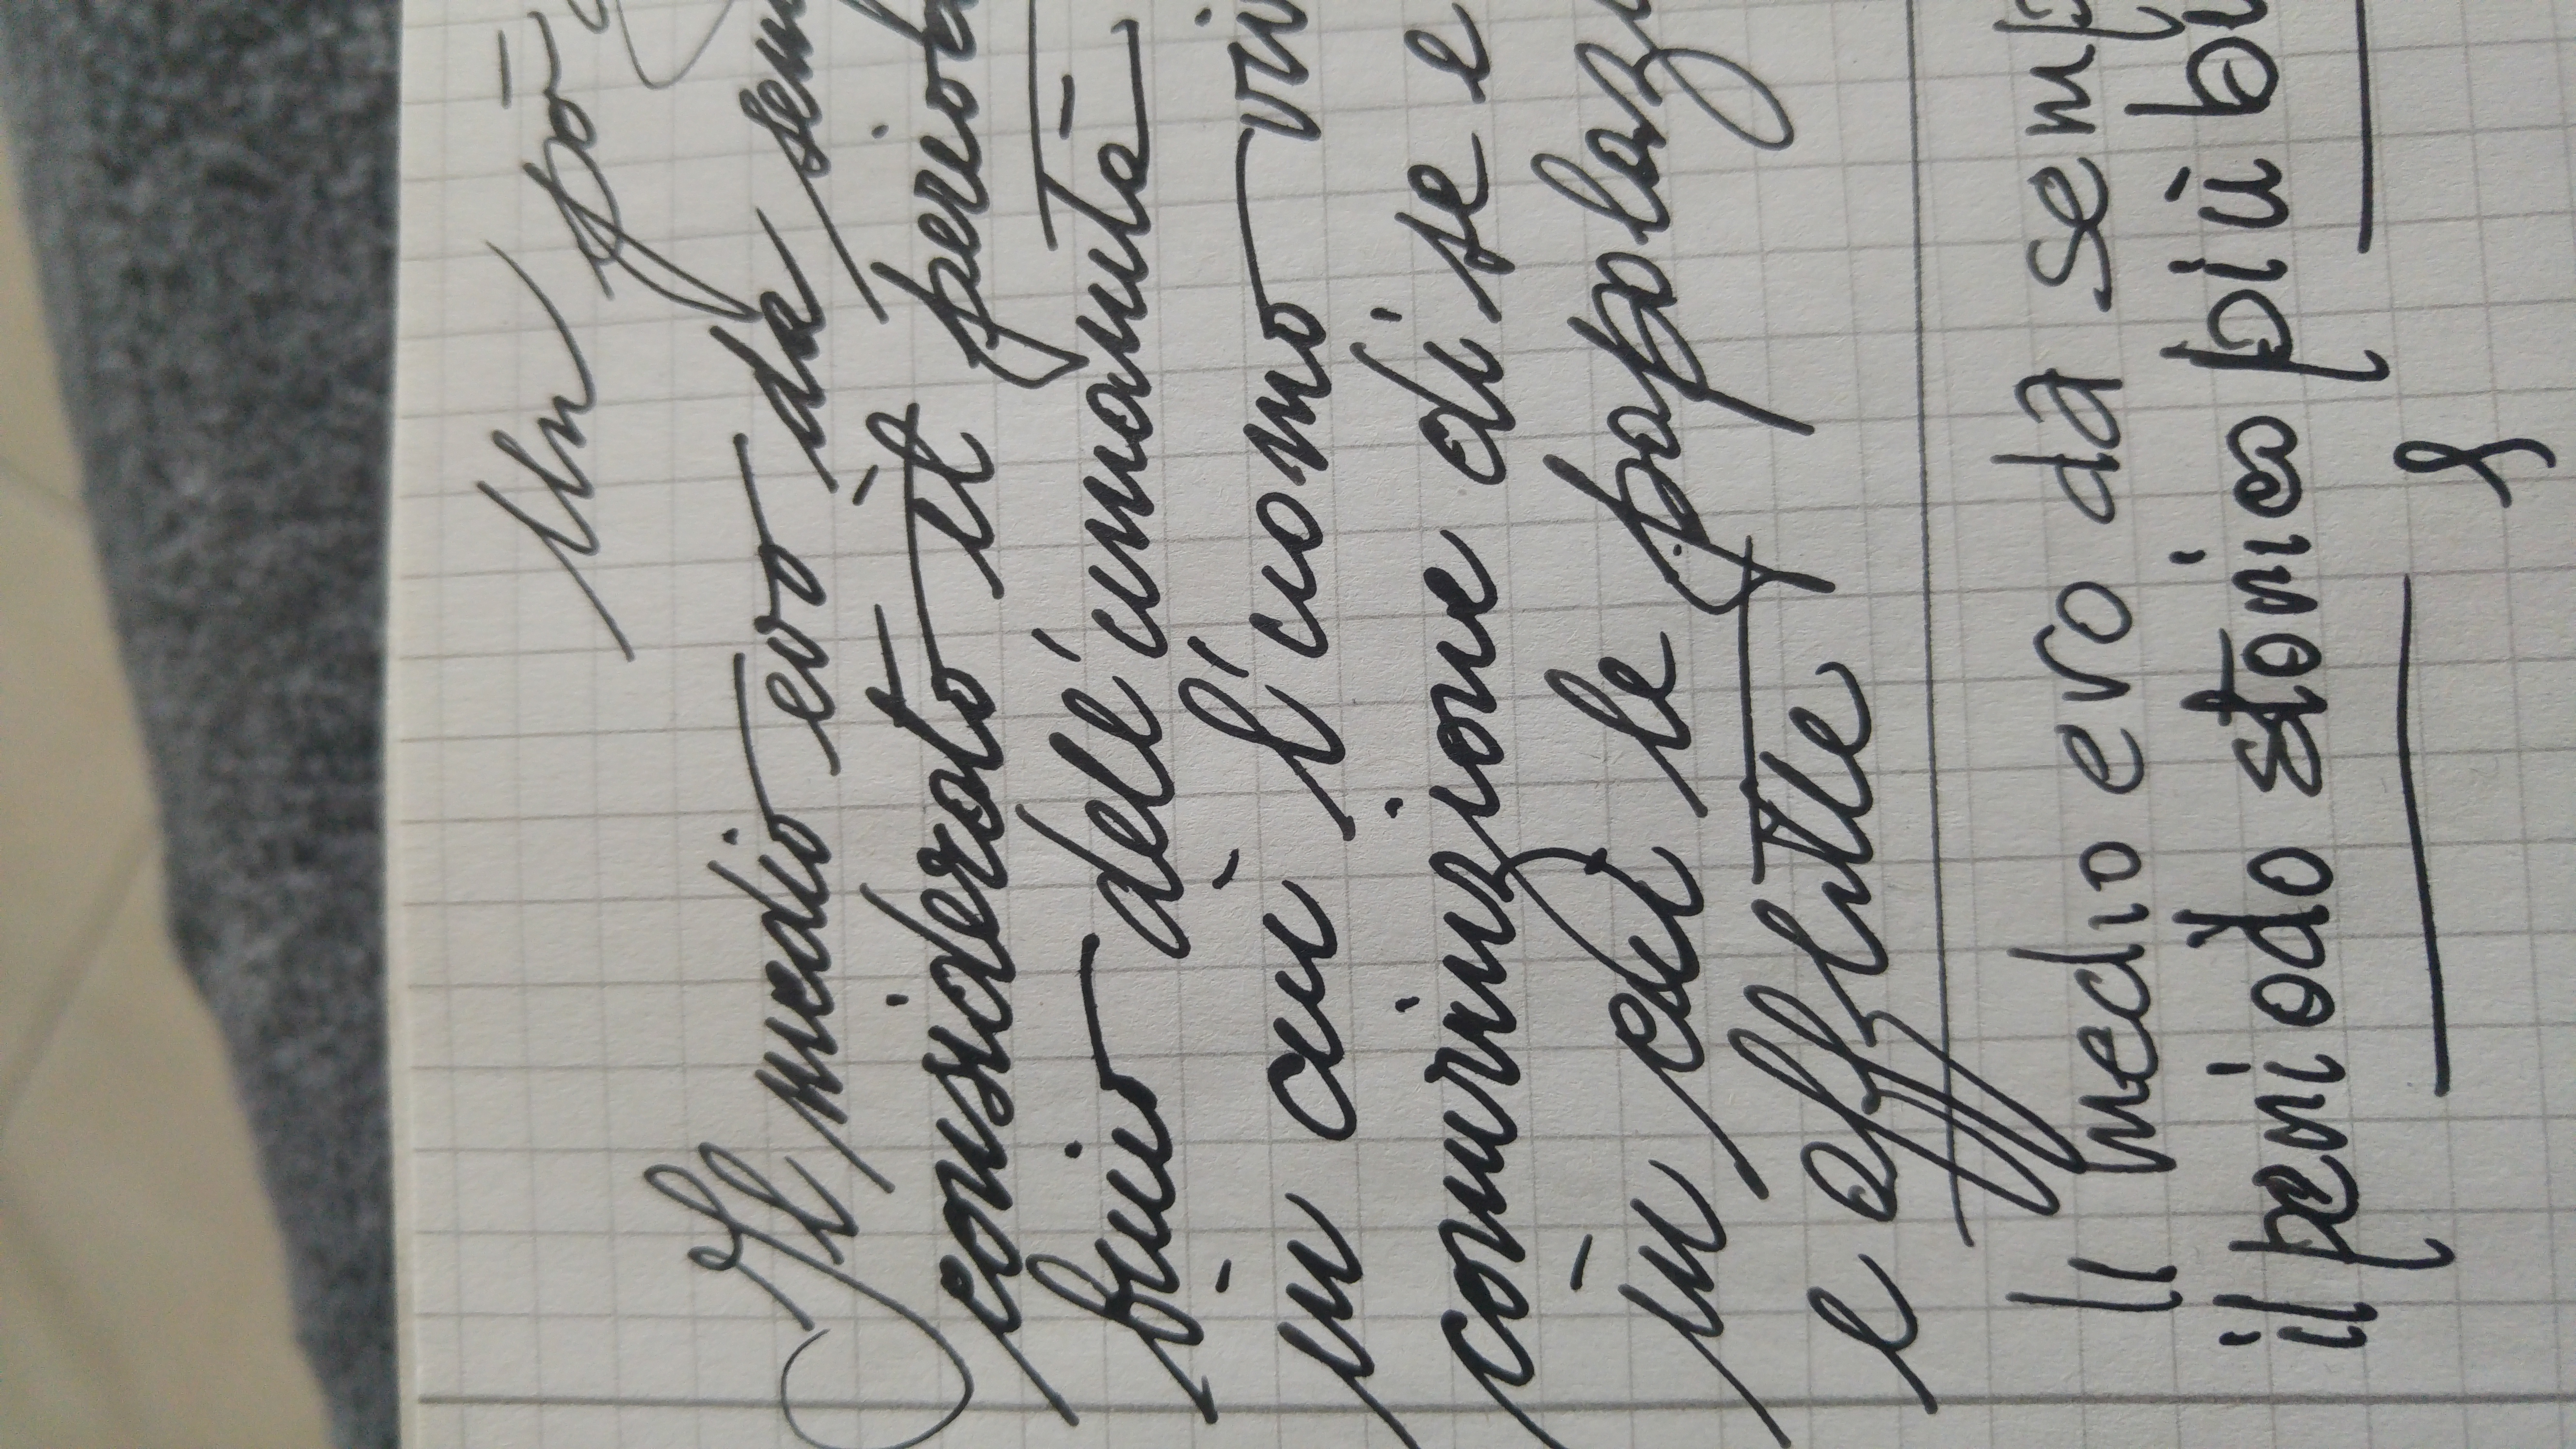 Un pò
Il medio evo da sem
considerato il period
buio dell'umanità
in cui l'uomo viv
convinzione di se e
in cui le popolazi
e afflitte
Il medio evo da semp
il periodo storico più bu